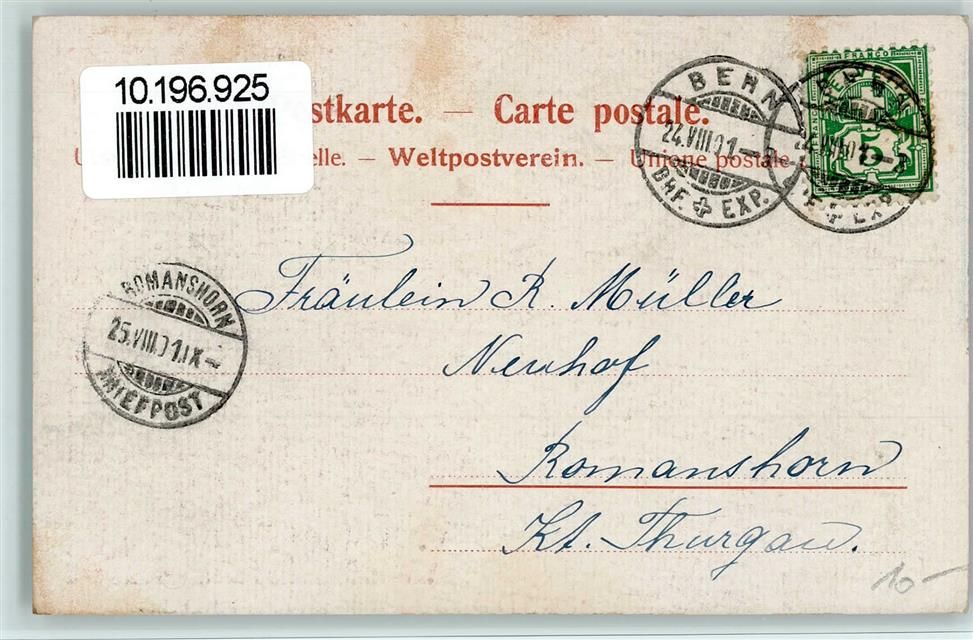 10.196.925
stkarte. — Carte postale.
elle. — Weltpostverein. — Unione postale
BERN
24.VIII.01
BHF. EXP.
FRANCO
HELVETIA
5
EXP.
ROMANSHORN
25.VIII.01.IX-
BRIEFPOST
Fräulein R. Müller
Neuhof
Romanshorn
Kt. Thurgau.
10-